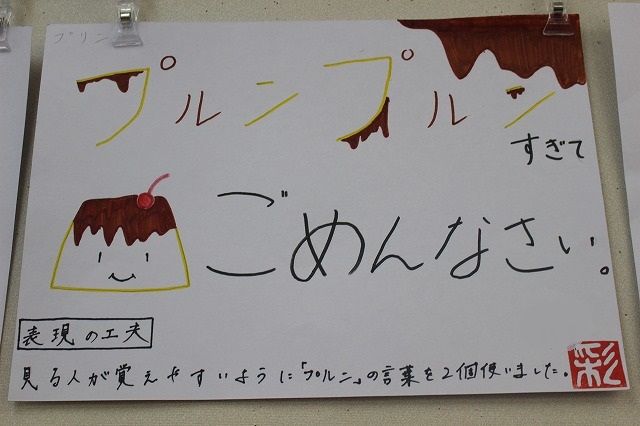 プリン
プルンプルン
すぎて
ごめんなさい。
表現の工夫
見る人が覚えやすいように「プルン」の言葉を2個使いました。
彩